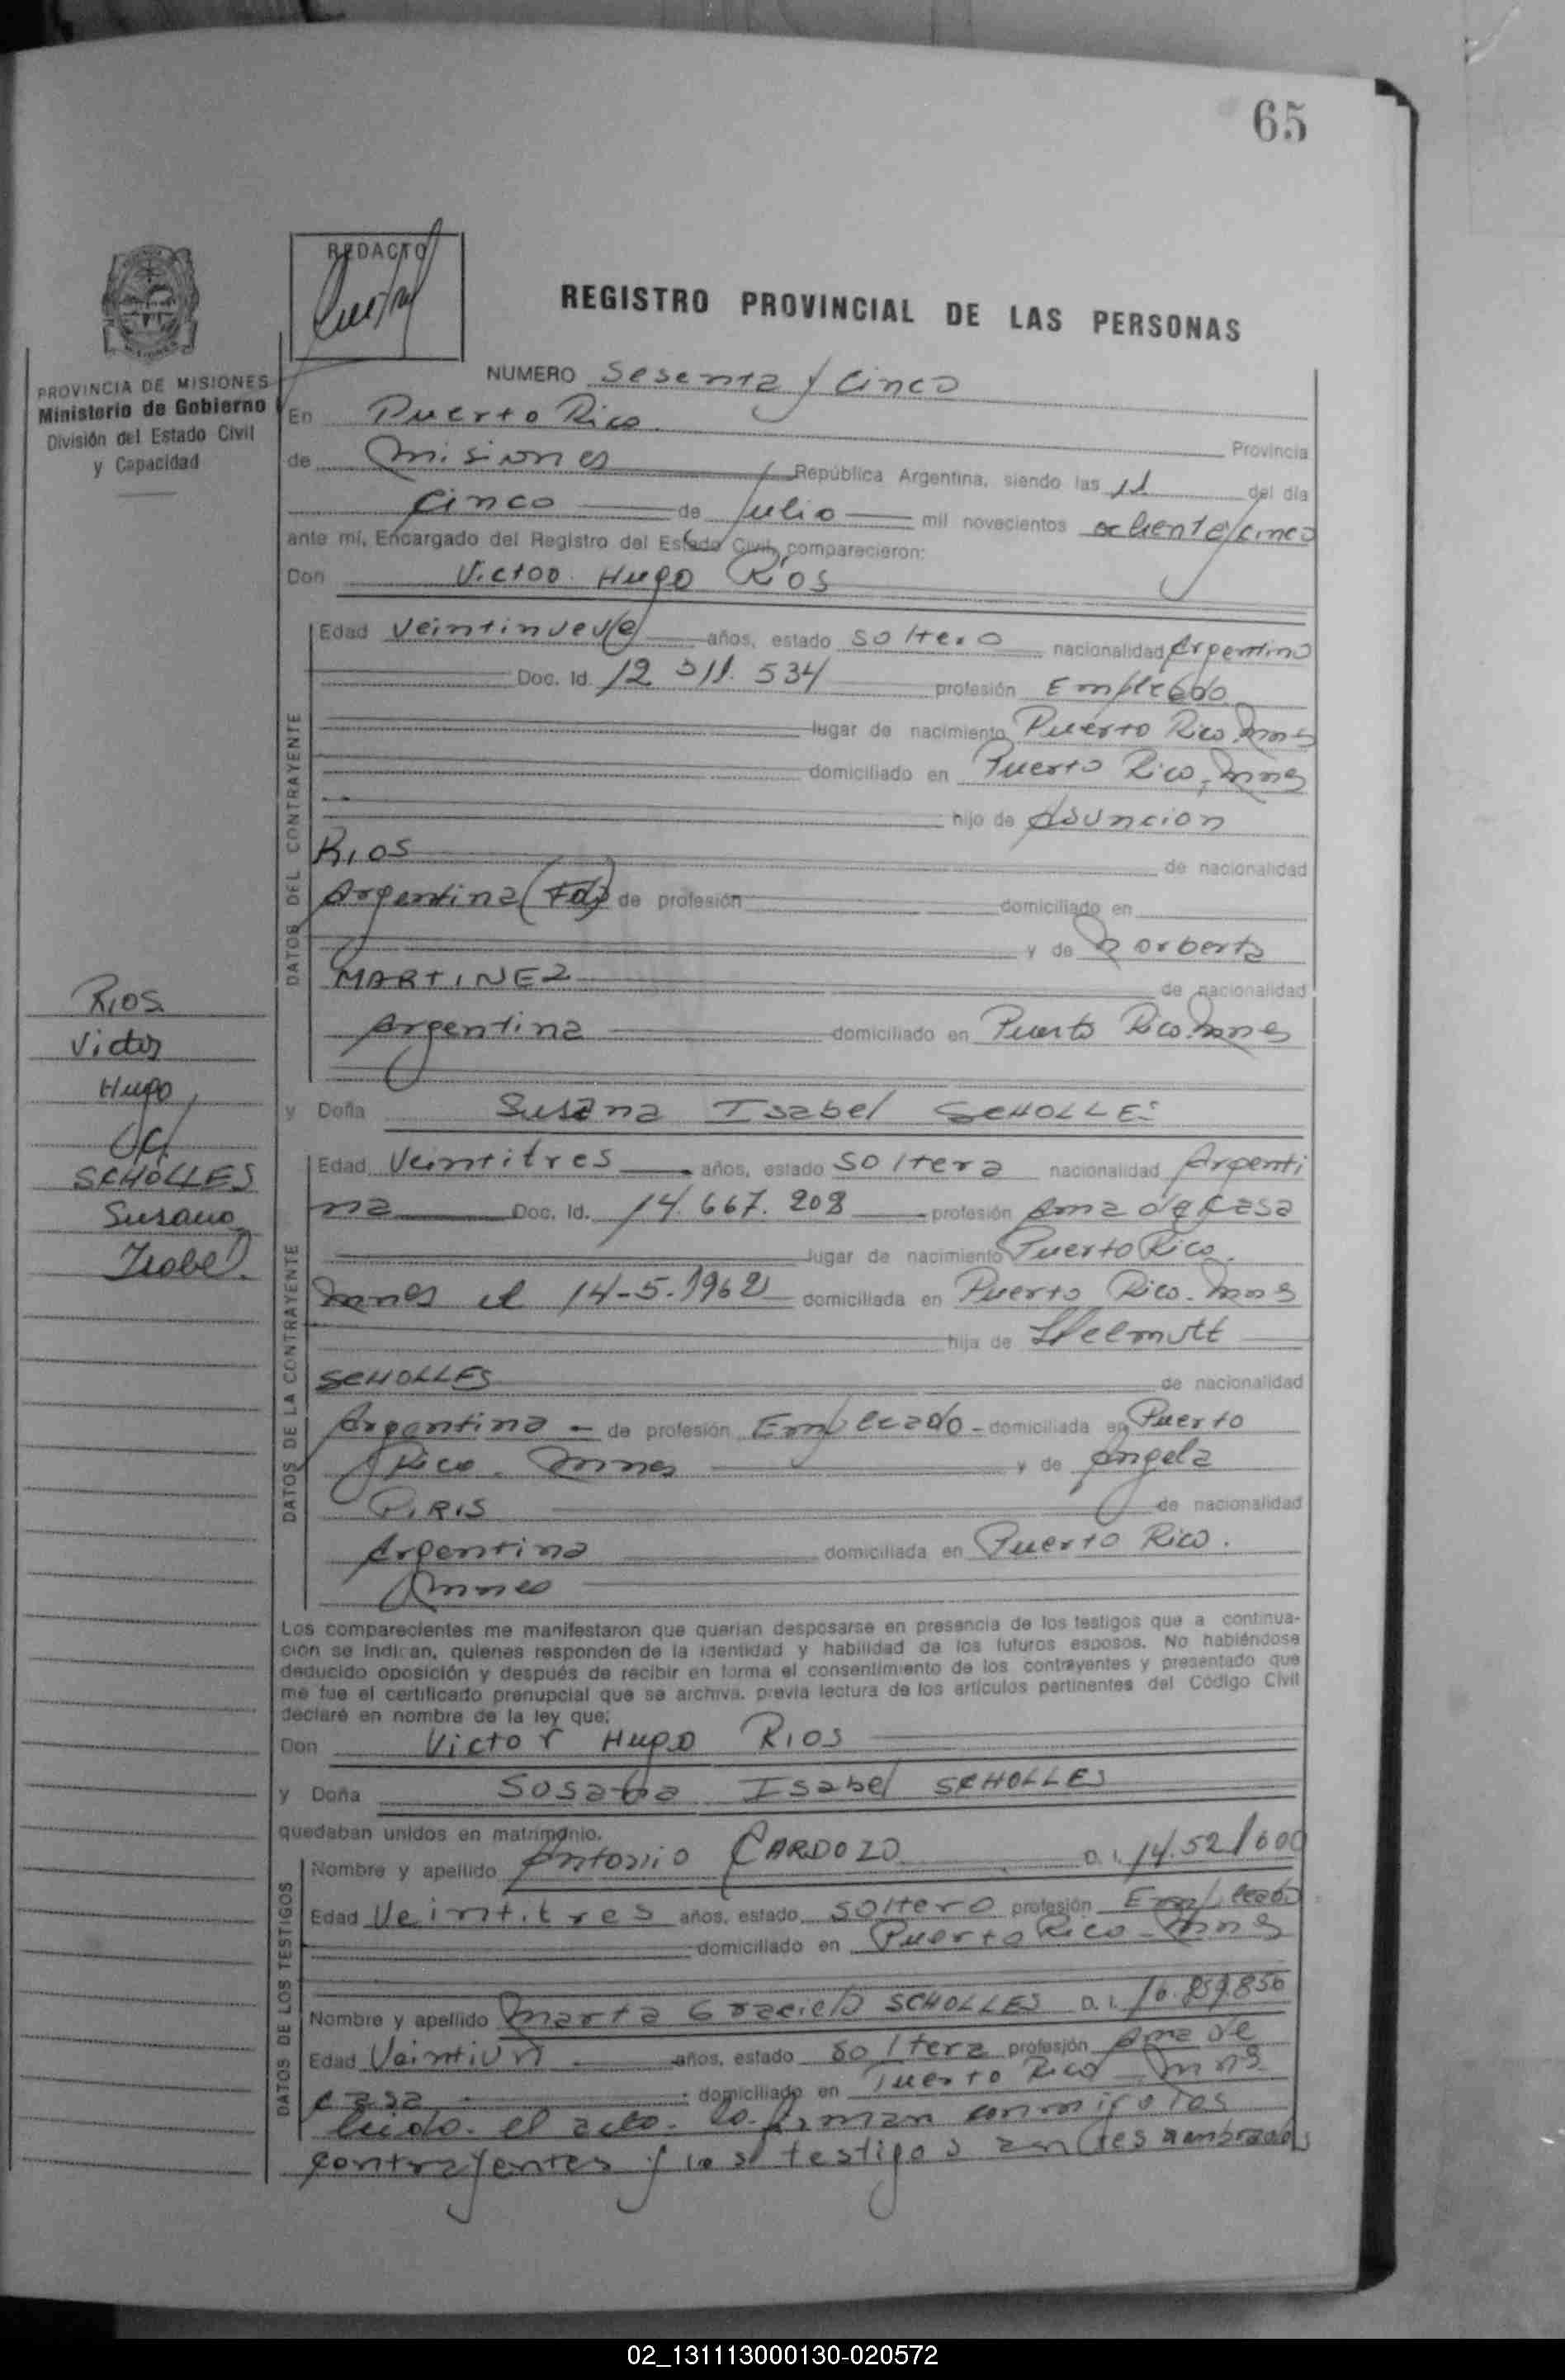 65
REDACTO
REGISTRO PROVINCIAL DE LAS PERSONAS
PROVINCIA DE MISIONES
Ministerio de Gobierno
División del Estado Civil
y Capacidad
NUMERO Sesenta y Cinco
En Puerto Rico Provincia
de Misiones República Argentina, siendo las 11 del día
cinco de Julio mil novecientos ochenta y cinco
ante mí, Encargado del Registro del Estado Civil, comparecieron:
Don Victor Hugo Rios
DATOS DEL CONTRAYENTE
Edad Veintinueve años, estado soltero nacionalidad Argentino
Doc. Id. 12 311. 534 profesión Empleado
lugar de nacimiento Puerto Rico Mnes
domiciliado en Puerto Rico, Mnes
hijo de Asuncion
Rios de nacionalidad
Argentina (Fdo) de profesión domiciliado en
y de Norberta
MARTINEZ de nacionalidad
Argentina domiciliado en Puerto Rico. Mnes
y Doña Susana Isabel SCHOLLES
RIOS
Victor
Hugo
SCHOLLES
Susana
Isabel.
DATOS DE LA CONTRAYENTE
Edad Veintitres años, estado soltera nacionalidad Argenti
na Doc. Id. 14. 667. 208 profesión Ama de Casa
lugar de nacimiento Puerto Rico.
Mnes el 14-5-1962 domiciliada en Puerto Rico. Mnes
hija de Helmutt
SCHOLLES de nacionalidad
Argentina - de profesión Empleado - domiciliada en Puerto
Rico. Mnes y de Angela
PIRIS de nacionalidad
Argentina domiciliada en Puerto Rico.
Mnes
Los comparecientes me manifestaron que querían desposarse en presencia de los testigos que a continua-
ción se indican, quienes responden de la identidad y habilidad de los futuros esposos. No habiéndose
deducido oposición y después de recibir en forma el consentimiento de los contrayentes y presentado que
me fue el certificado prenupcial que se archiva, previa lectura de los artículos pertinentes del Código Civil
declaré en nombre de la ley que:
Don Victor Hugo RIOS
y Doña Sosana Isabel SCHOLLES
quedaban unidos en matrimonio.
DATOS DE LOS TESTIGOS
Nombre y apellido Antonio CARDOZO D. I. 14.521600
Edad Veintitres años, estado soltero profesión Empleado
domiciliado en Puerto Rico - Mnes
Nombre y apellido Marta Graciela SCHOLLES D. I. 16.859.850
Edad Veintiun años, estado soltera profesión Ama de
casa domiciliado en Puerto Rico Mnes
leido. el acto. lo firman conmigo los
contrayentes y los testigos antes nombrados
02_131113000130-020572